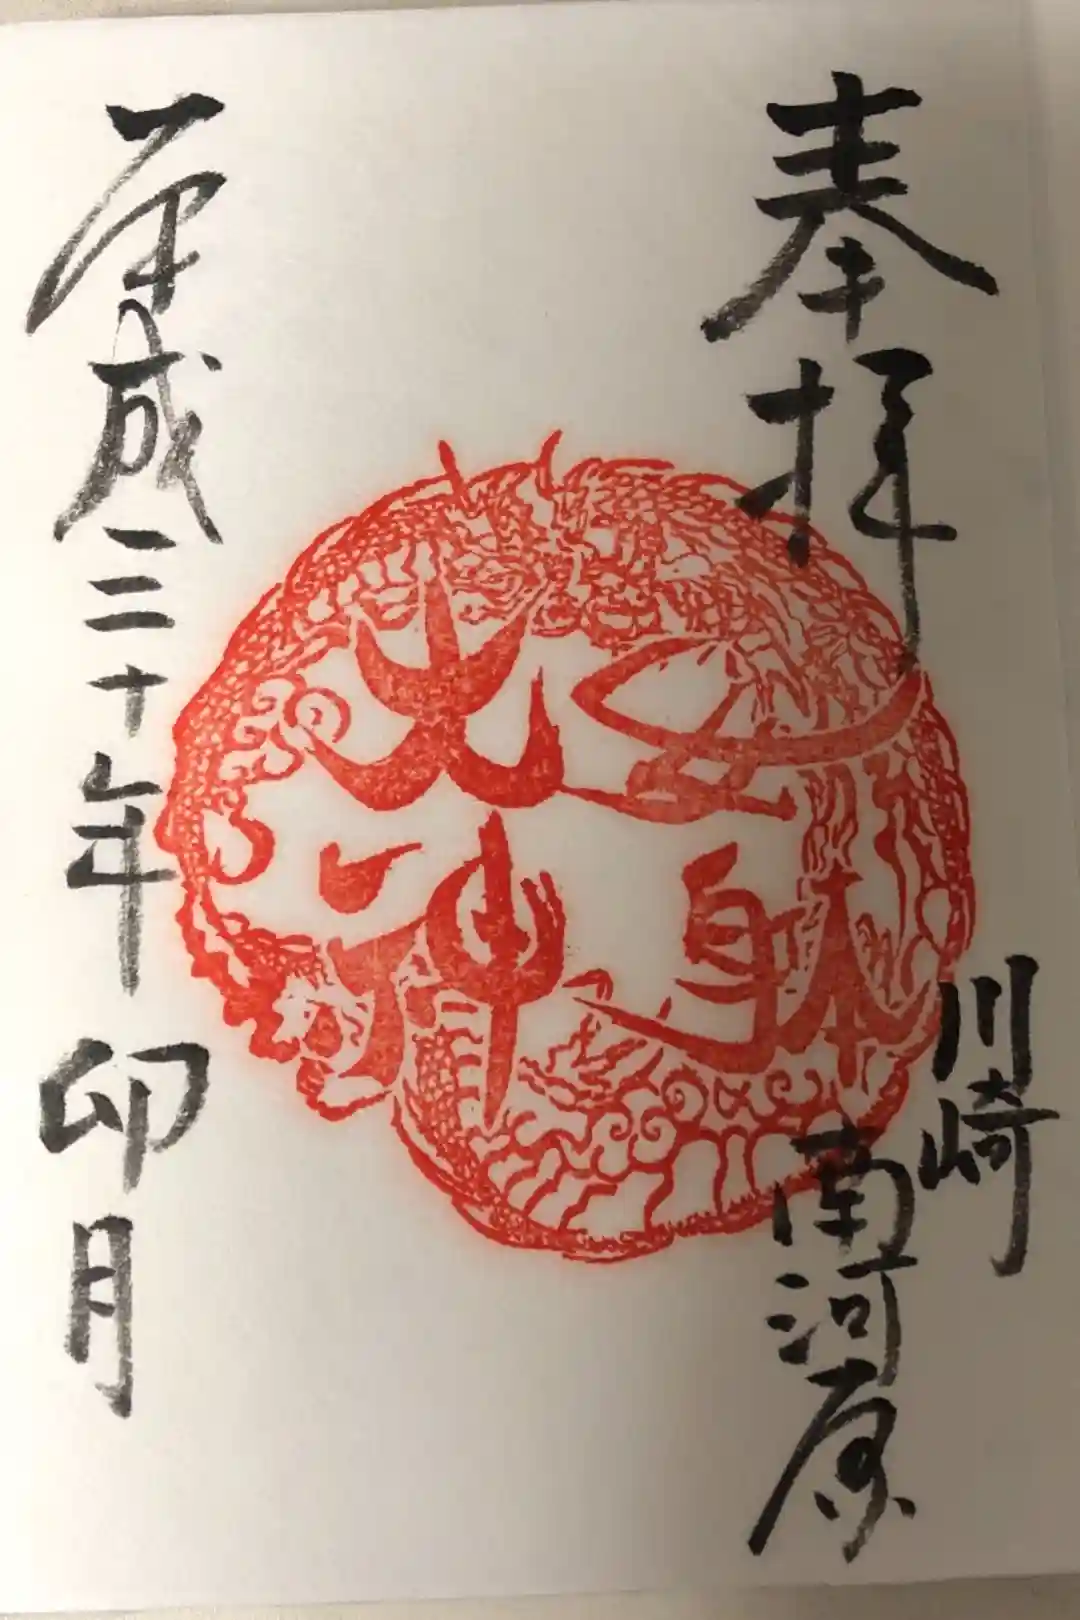 奉拝
川崎
南河原
女躰
大神
平成三十年 卯月